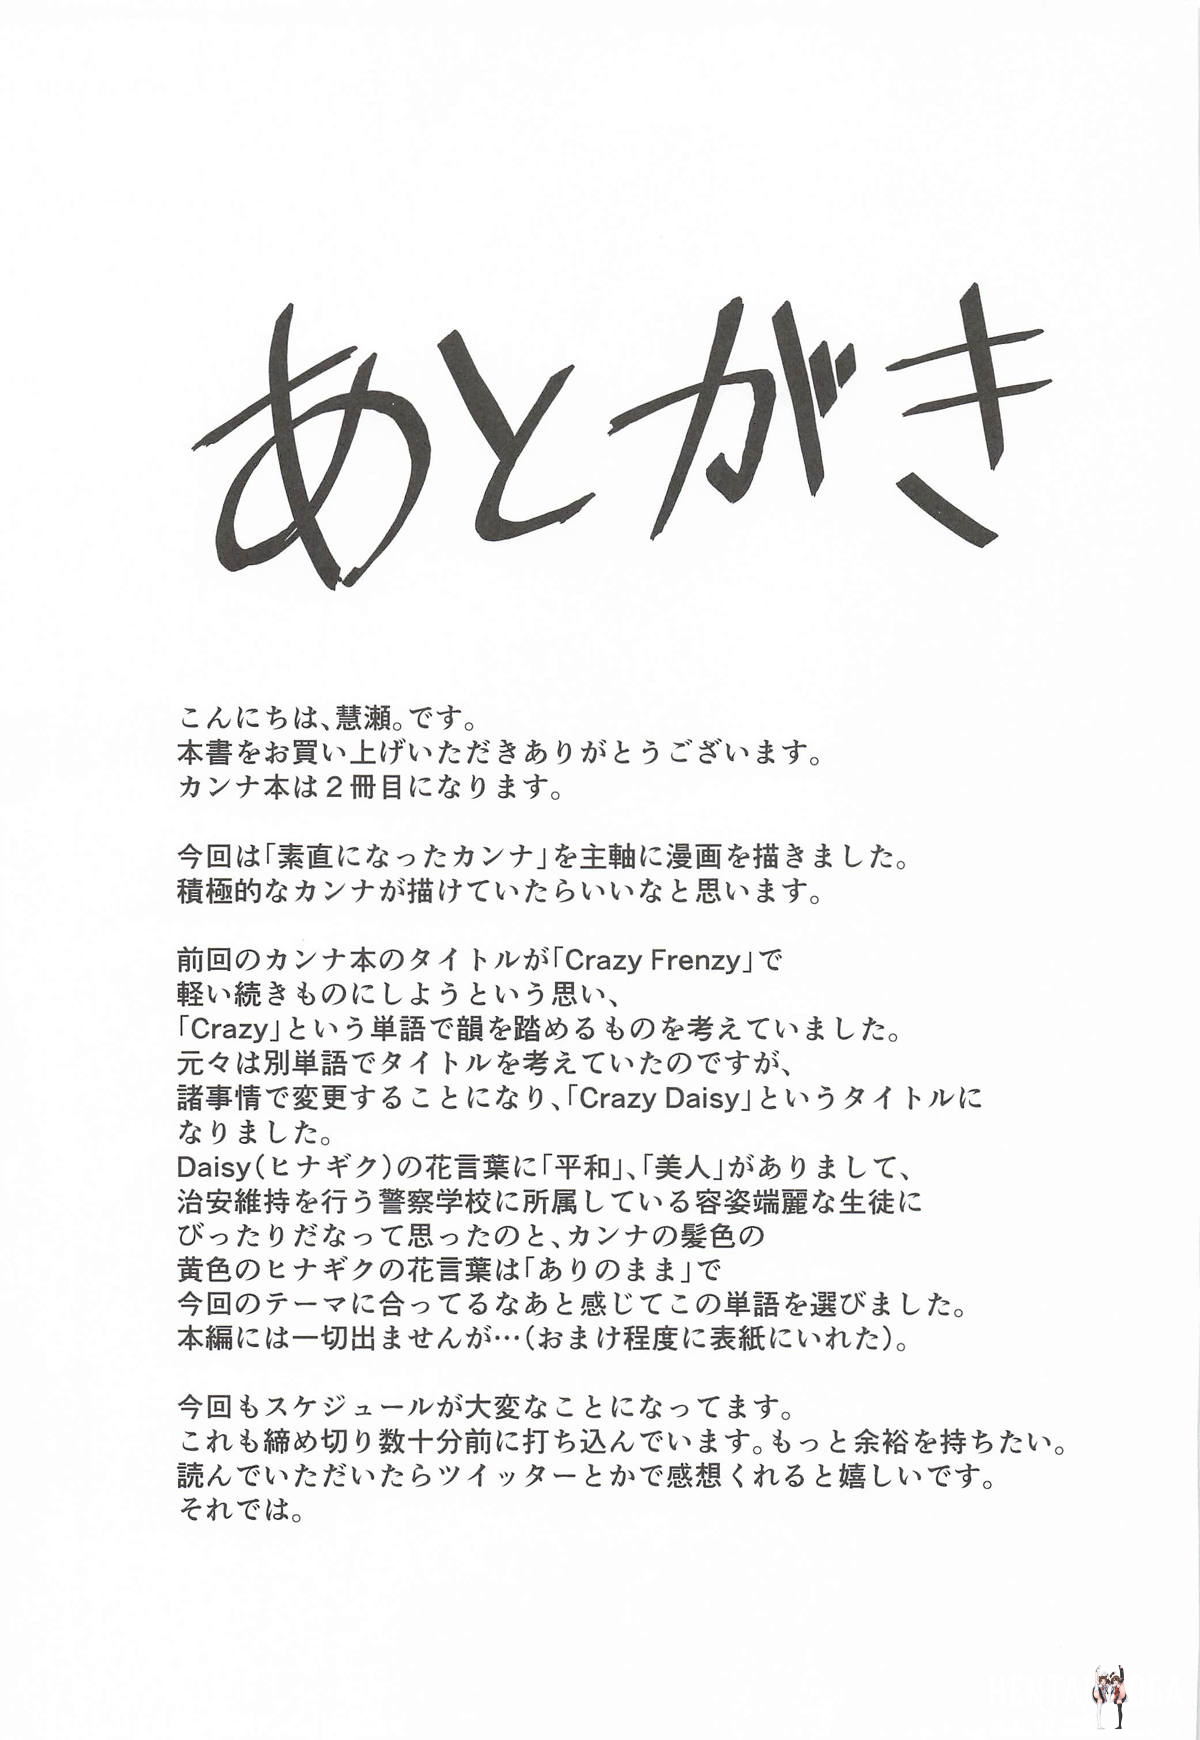 あとがき
こんにちは、慧瀬。です。
本書をお買い上げいただきありがとうございます。
カンナ本は２冊目になります。
今回は「素直になったカンナ」を主軸に漫画を描きました。
積極的なカンナが描けていたらいいなと思います。
前回のカンナ本のタイトルが「Crazy Frenzy」で
軽い続きものにしようという思い、
「Crazy」という単語で韻を踏めるものを考えていました。
元々は別単語でタイトルを考えていたのですが、
諸事情で変更することになり、「Crazy Daisy」というタイトルに
なりました。
Daisy（ヒナギク）の花言葉に「平和」、「美人」がありまして、
治安維持を行う警察学校に所属している容姿端麗な生徒に
ぴったりだなって思ったのと、カンナの髪色の
黄色のヒナギクの花言葉は「ありのまま」で
今回のテーマに合ってるなあと感じてこの単語を選びました。
本編には一切出ませんが…（おまけ程度に表紙にいれた）。
今回もスケジュールが大変なことになってます。
これも締め切り数十分前に打ち込んでいます。もっと余裕を持ちたい。
読んでいただいたらツイッターとかで感想くれると嬉しいです。
それでは。